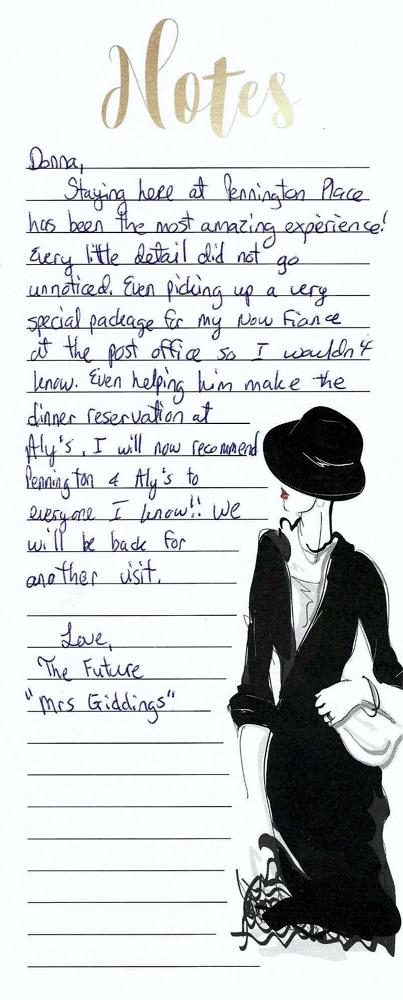 Notes
Donna,
Staying here at Pennington Place
has been the most amazing experience!
Every little detail did not go
unnoticed. Even picking up a very
special package for my now fiance
at the post office so I wouldn't
know. Even helping him make the
dinner reservation at
Aly's. I will now recommend
Pennington & Aly's to
everyone I know!! We
will be back for
another visit.
Love,
The Future
"Mrs Giddings"